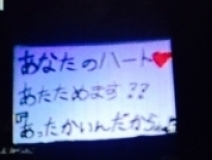 あなたのハート❤
あたためます??
『あったかいんだからぁ♪』